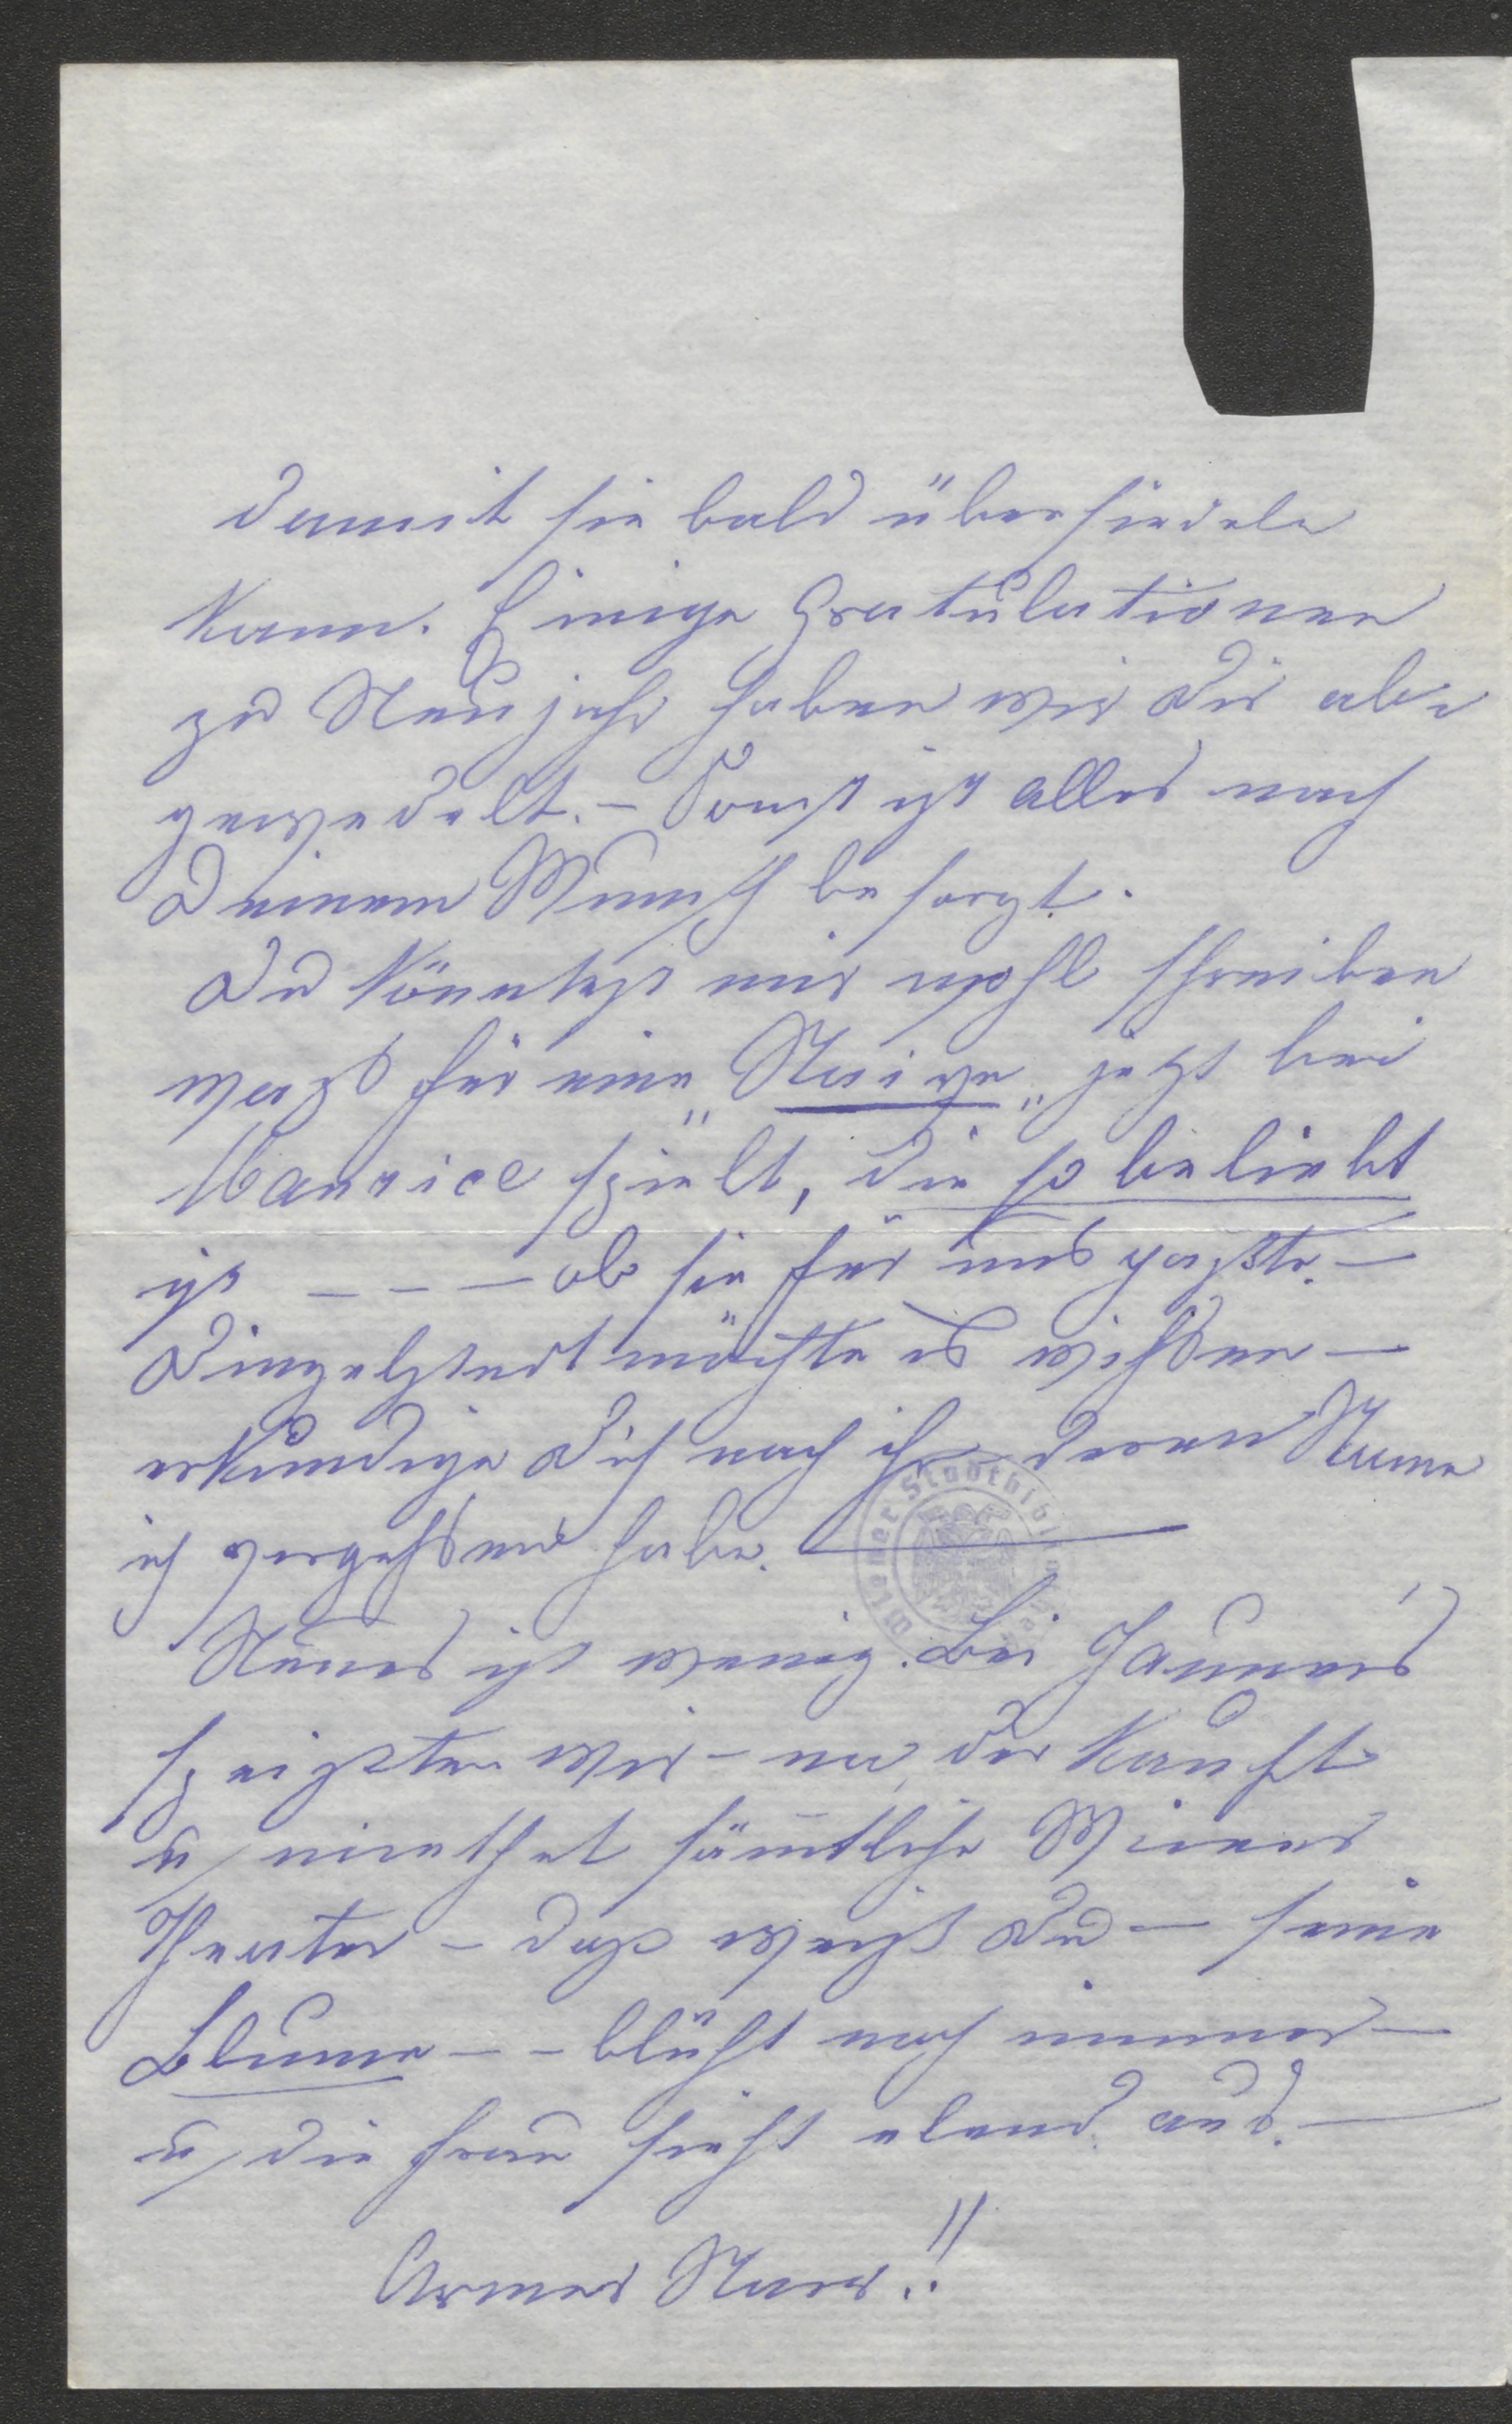 damit sie bald übersiedeln
kann. Einige Gratulationen
zu Neujahr haben wir Dir ab-
gewedelt. – Sonst ist alles nach
Deinem Wunsch besorgt.
Du könntest mir wohl schreiben
waß für eine „Naive„ jetzt bei
Maurice spielt, die so beliebt
ist – – – ob sie für uns paßte. –
Dingelstedt möchte es wißen –
erkundige Dich nach ihr deren Name
ich vergeßen habe. –
Neues ist wenig. Bei Jauner's
speisten wir – na, der kauft
u miethet sämtliche Wiener
Theater – daß weißt Du – seine
Blume – – blüht noch immer –
u die Frau sieht elend aus. –
Armer Narr!!
Wiener Stadtbibliothek